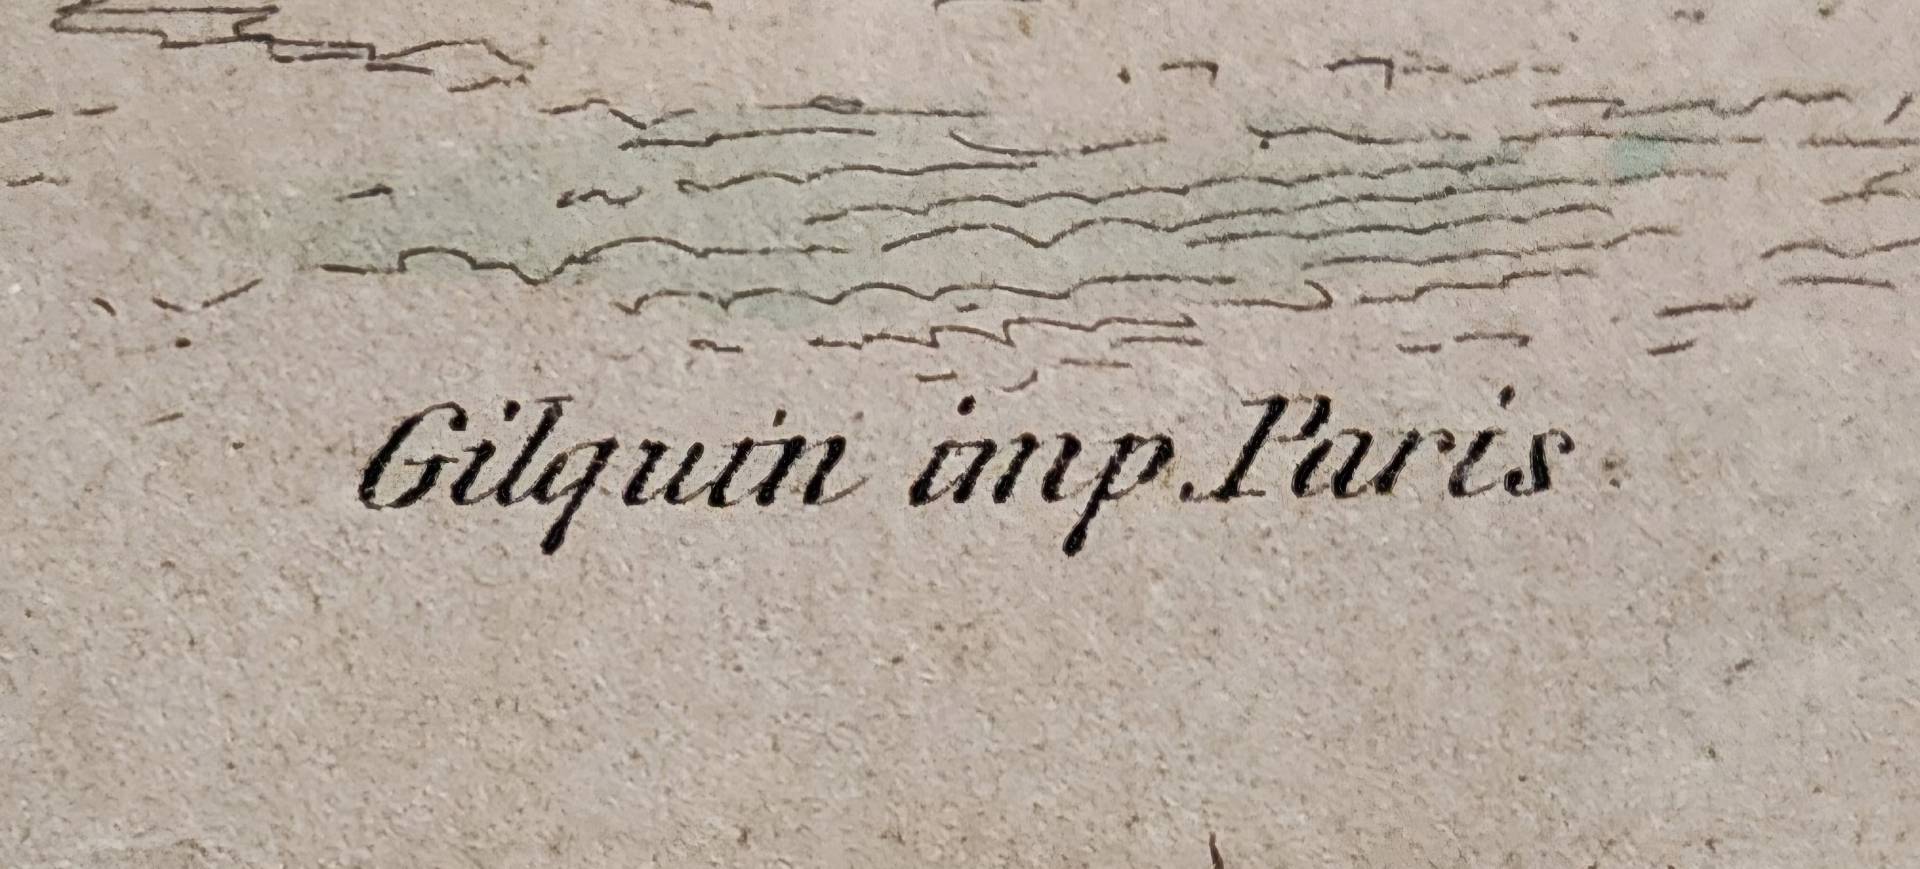 Gilquin imp. Paris.